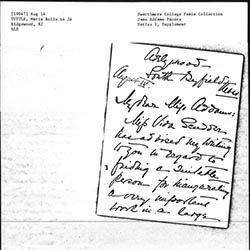 [1904?] Aug 14
TUTTLE, Maria Rolla to JA
Ridgewood, NJ
ALS
Swarthmore College Peace Collection
Jane Addams Papers
Series 1, Supplement
South Byfield
Mass
August 14
My dear Miss Addams:
Miss Vida Scudder
has advised my writing
to you in regard to
finding a suitable
person for inaugurating
a very important
work in a large